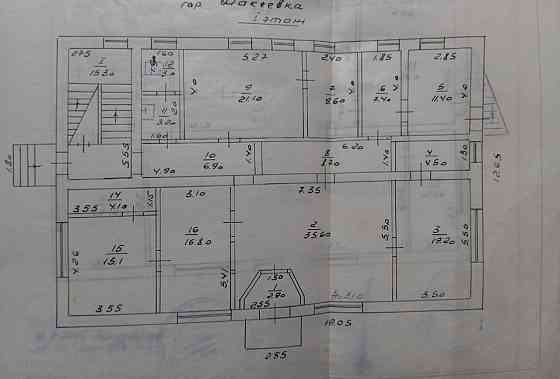 гор Макеевка
I этаж
2.75
I
15.30
1.60
12
3.0
11
3.20
1.60
5.27
9
21.10
4.0
2.40
7
9.60
1.85
6
7.40
4.0
2.85
5
11.40
4.0
1.80
5.53
4.90
10
6.90
1.40
8
8.70
6.20
1.40
4
4.50
1.30
12.05
14
4.10
3.55
1.15
3.10
7.35
4.26
15
15.1
3.55
16
16.80
5.41
2
35.60
5.50
3
19.20
5.50
1.30
1
2.80
2.55
3.50
18.05
2.55